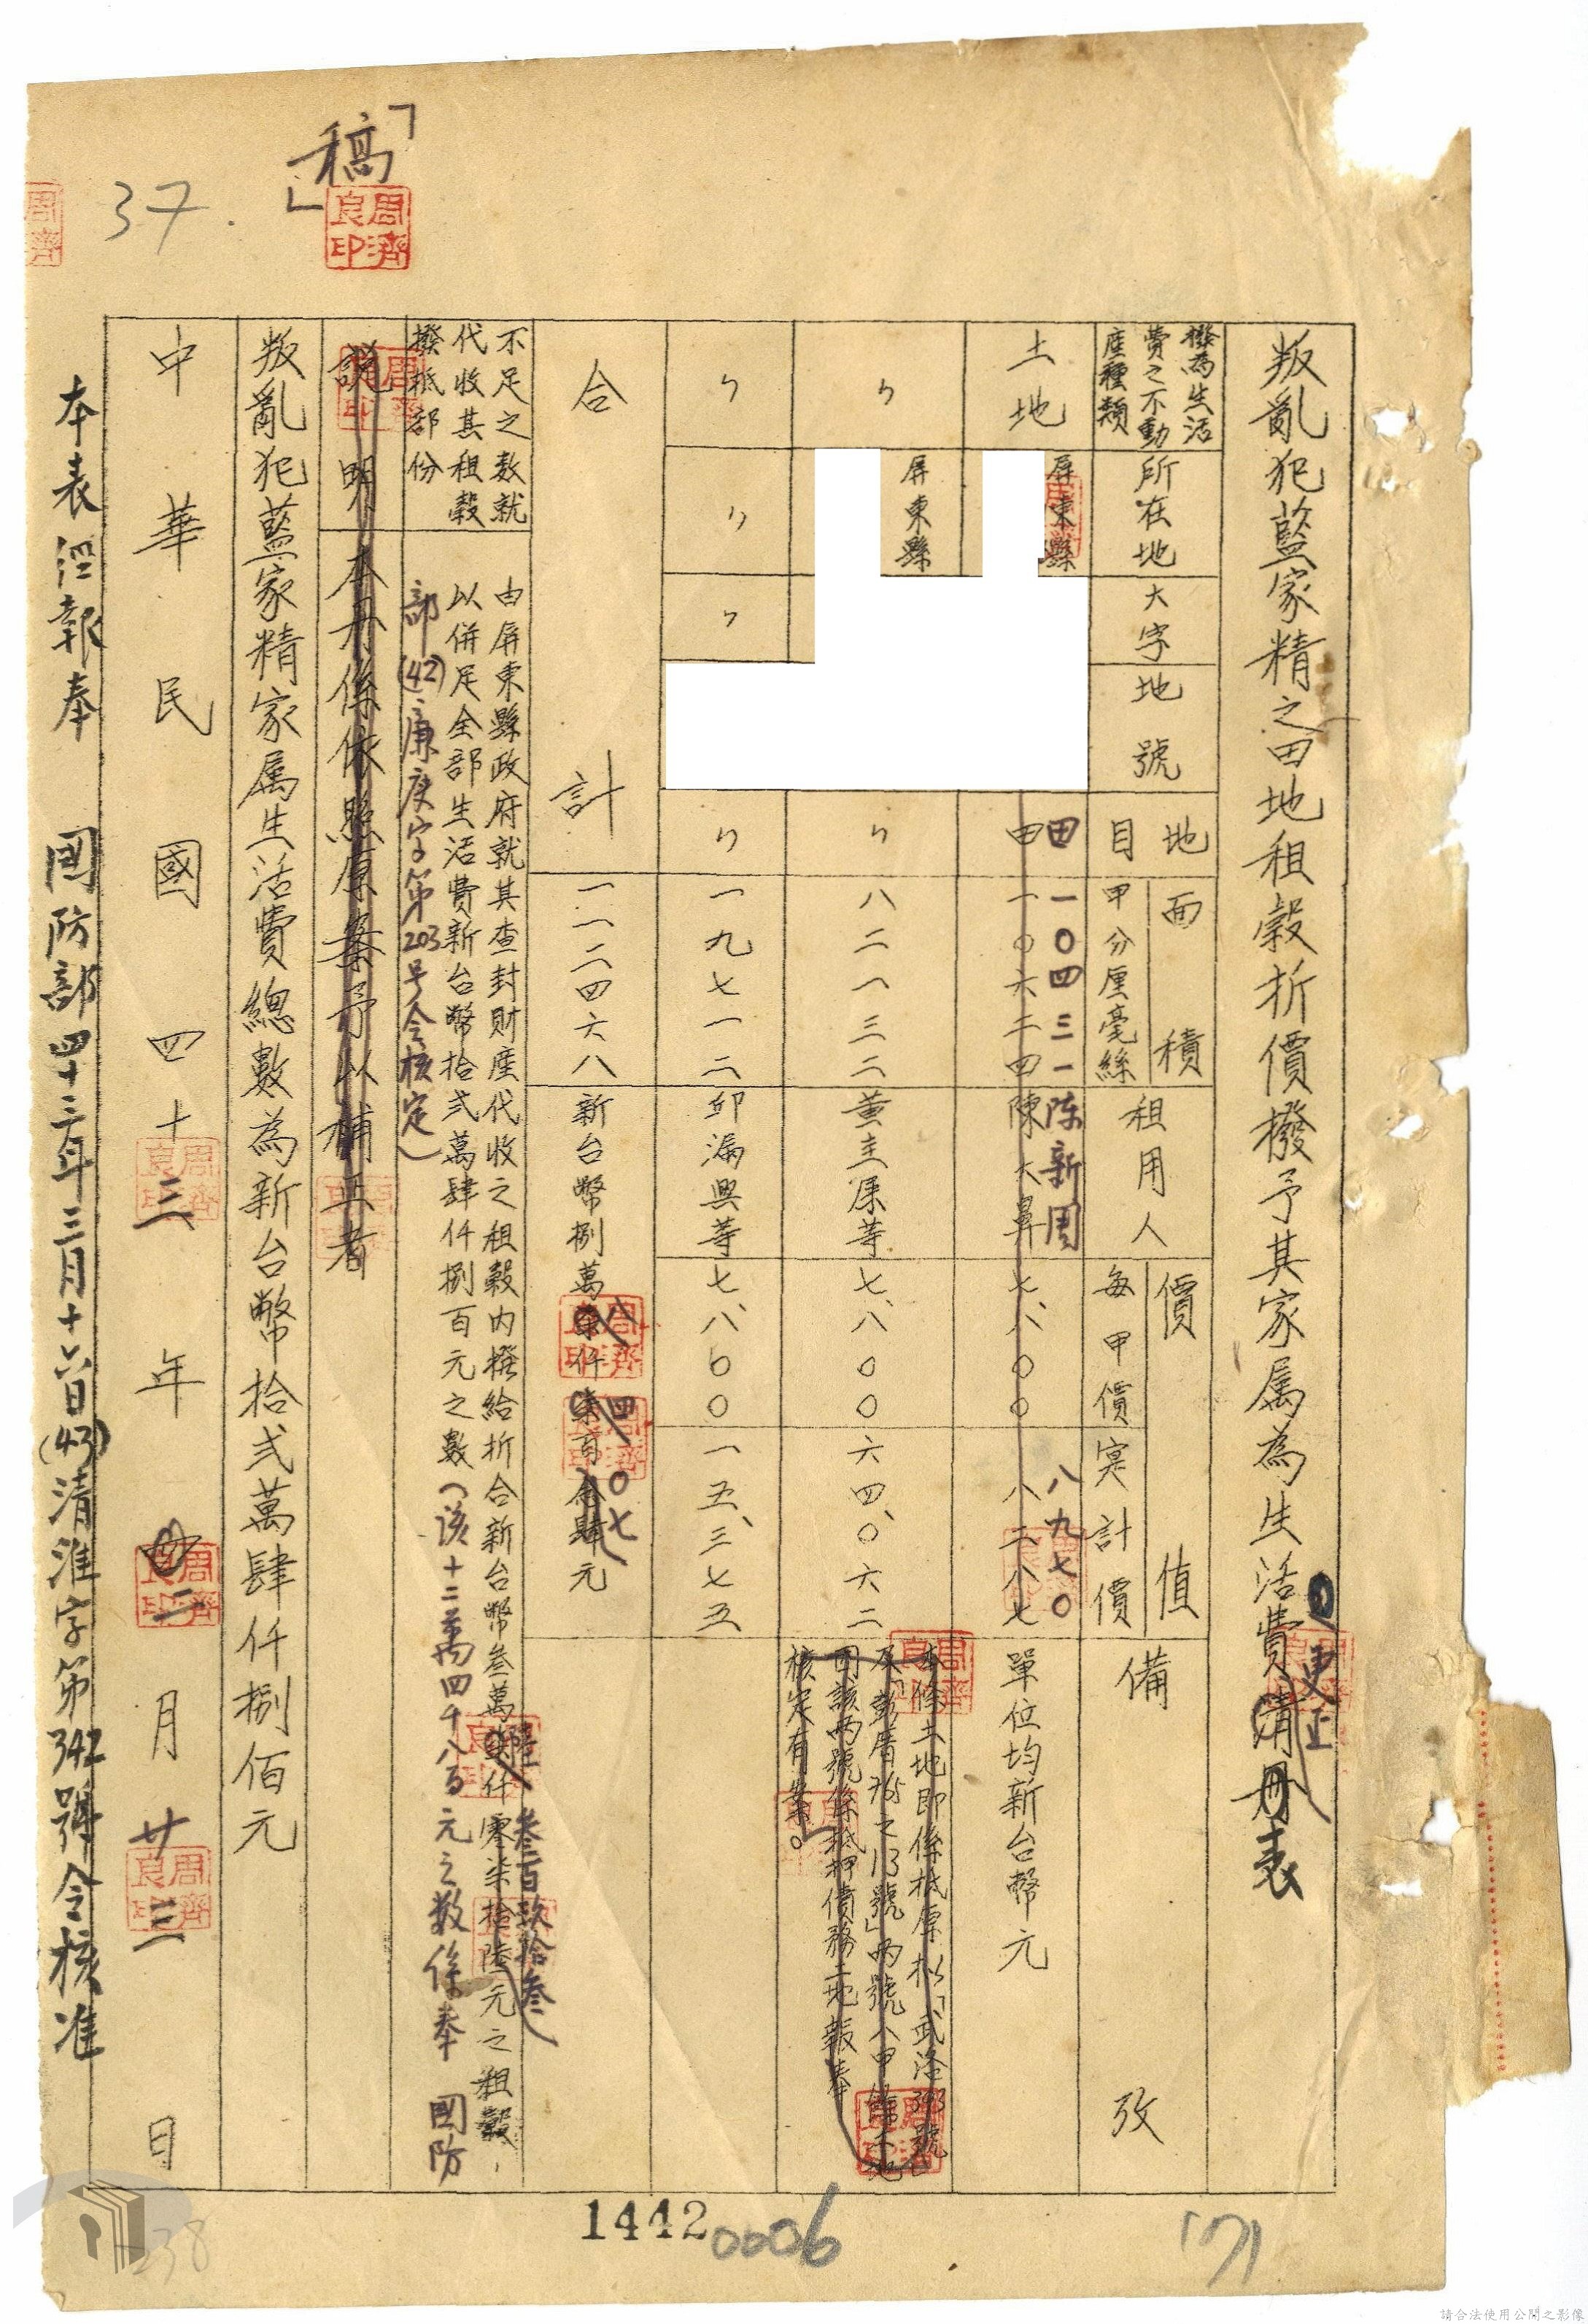 「稿」
周濟良印
37.
叛亂犯藍家精之田地租穀折價撥予其家屬為生活費清冊表
更正
撥為生活費之不動產種類
所在地
大字
地號
地目
面積
甲分厘毫絲
租用人
價值
每甲價
實計價
備攷
土地
屏東縣
田 一〇四三一 陳新周 八九七〇
田 一〇六二四 陳大鼻 七、八〇〇 八二八七
單位均新台幣元
〃
屏東縣
〃 八二一三二 黃圭康等 七、八〇〇 六四、〇六二
本條土地即係抵原擬「武洛393號」
及「彭厝76之13號」兩號八甲餘土地
因該兩號係抵押債務土地報奉
核定有案。
〃 〃 〃 〃 一九七一二 邱漏興等 七、八〇〇 一五、三七五
合計 一一二四六八 新台幣捌萬柒仟柒百念肆元
八 四〇七
不足之數就
代收其租穀
撥抵部份
由屏東縣政府就其查封財產代收之租穀內撥給折合新台幣叁萬柒仟零柒拾陸元之租穀,
陸 叁百玖拾叁
以併足全部生活費新台幣拾弍萬肆仟捌百元之數(該十二萬四千八百元之数係奉 國防
部(42)廉庚字第203号令核定)
說明 本冊係依照原案予以補正者
叛亂犯藍家精家屬生活費總數為新台幣拾弍萬肆仟捌佰元
中華民國四十三年四二月廿三日
本表經報奉 國防部四十三年三月十六日(43)清淮字第342號令核准
1442
0006
171
238
請合法使用公開之影像